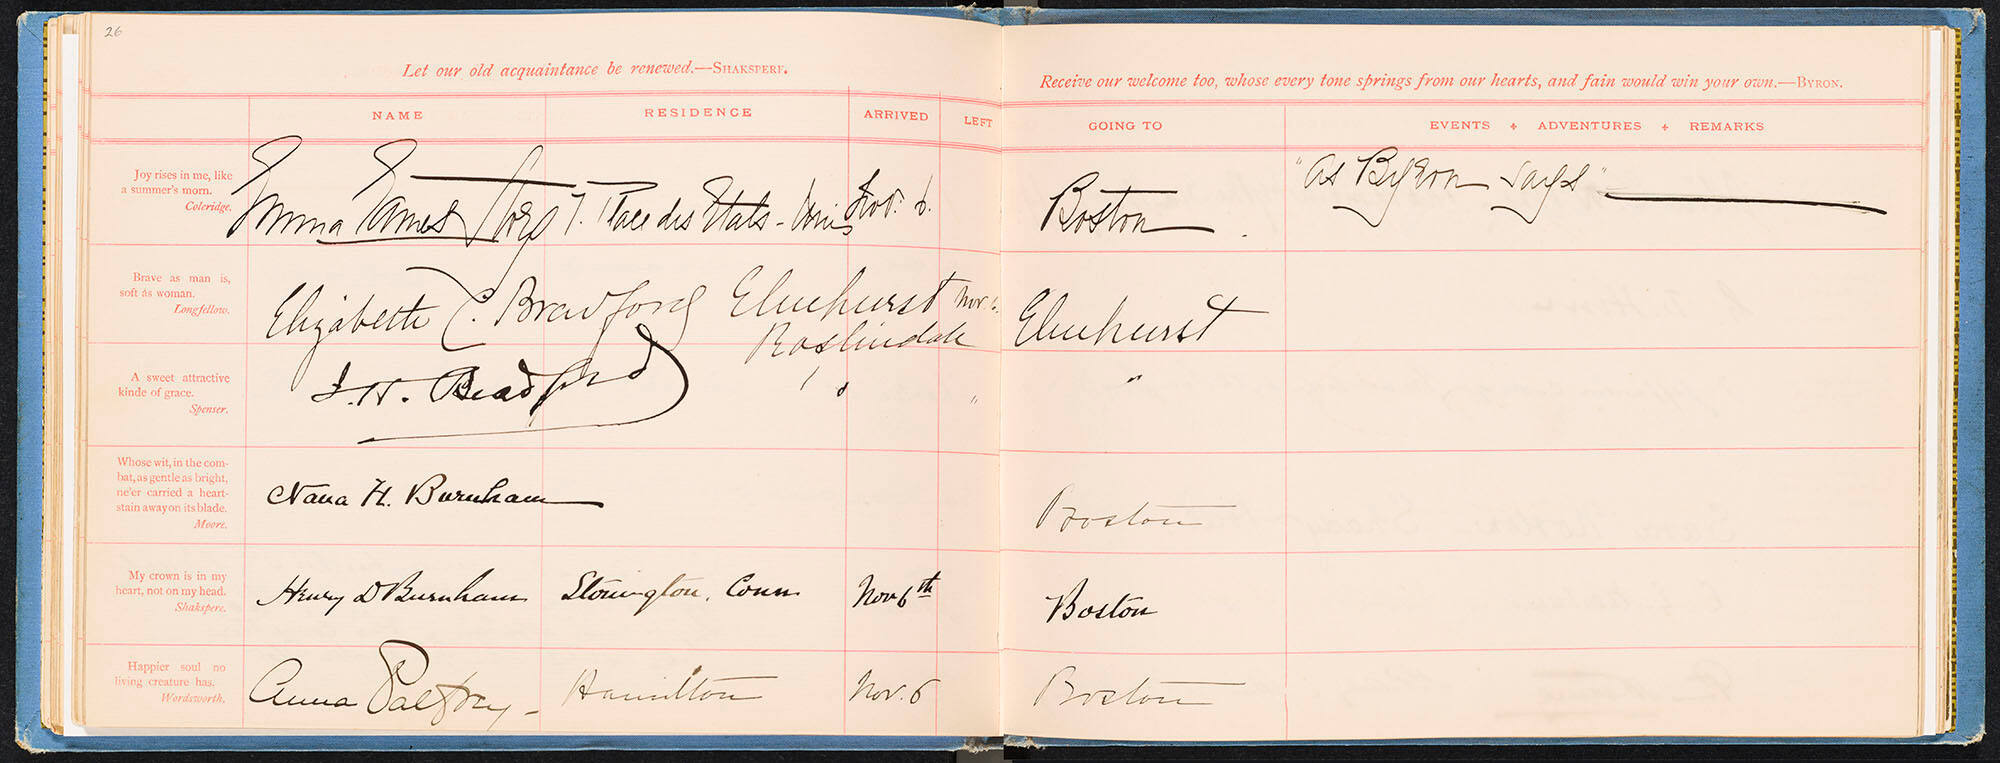 26
Let our old acquaintance be renewed.—SHAKSPERE.
Receive our welcome too, whose every tone springs from our hearts, and fain would win your own.—BYRON.
NAME RESIDENCE ARRIVED LEFT GOING TO EVENTS + ADVENTURES + REMARKS
Joy rises in me, like
a summer's morn.
Coleridge.
Emma Eames Story 7. Place des Etats-Unis Nov. 6. Boston "As Byron says"
Brave as man is,
soft as woman.
Longfellow.
Elizabeth C. Bradford Elmhurst Nov. 6. Elmhurst
Roslindale
A sweet attractive
kinde of grace.
Spenser.
J. H. Bradford " " " "
Whose wit, in the com-
bat, as gentle as bright,
ne'er carried a heart-
stain away on its blade.
Moore.
Nana H. Burnham Boston
My crown is in my
heart, not on my head.
Shakspere.
Henry D Burnham Stonington, Conn Nov 6th Boston
Happier soul no
living creature has.
Wordsworth.
Anna Palfrey - Hamilton Nov. 6 Boston